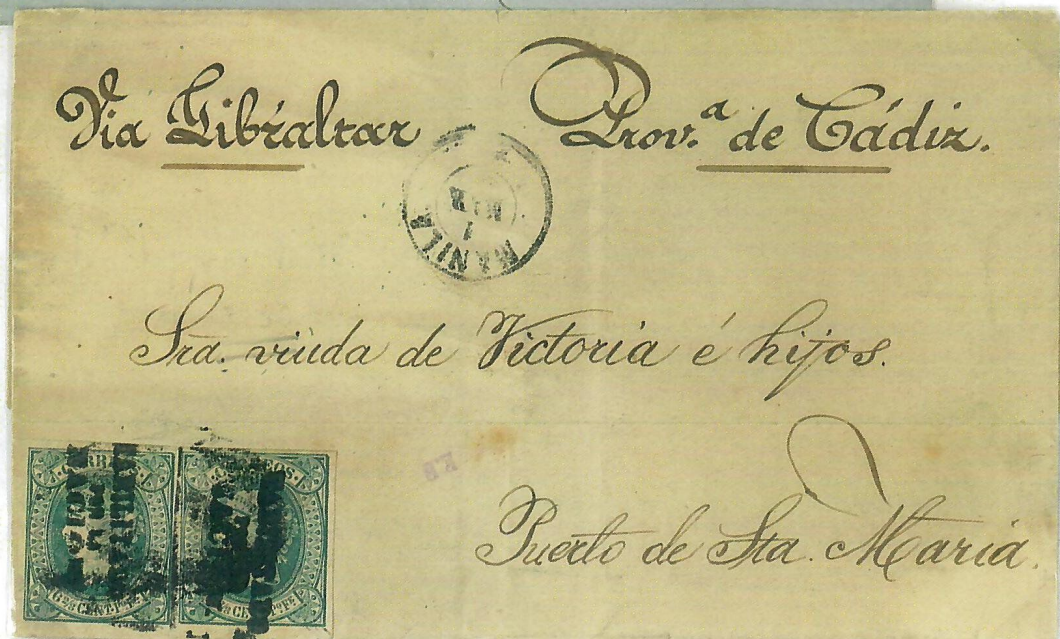 Via Gibraltar
Prov.ª de Cádiz.
MANILA
1
MAR
Srã. viuda de Victoria é hijos.
Puerto de Sta. Maria.
CORREOS
CORREOS